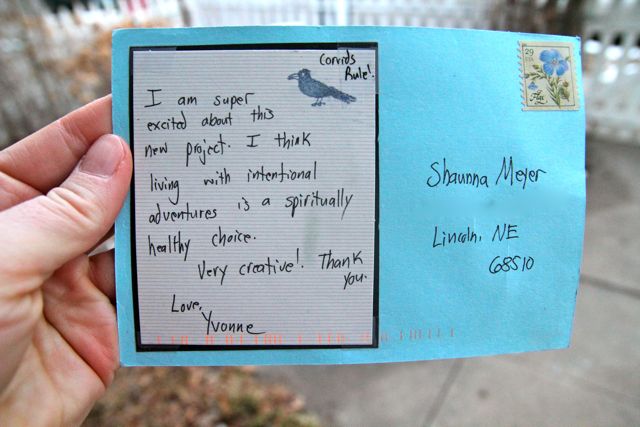 Corvids
Rule!
I am super
excited about this
new project. I think
living with intentional
adventures is a spiritually
healthy choice.
Very creative! Thank
you.
Love,
Yvonne
29
USA
Flax
Shaunna Meyer
Lincoln, NE
68510